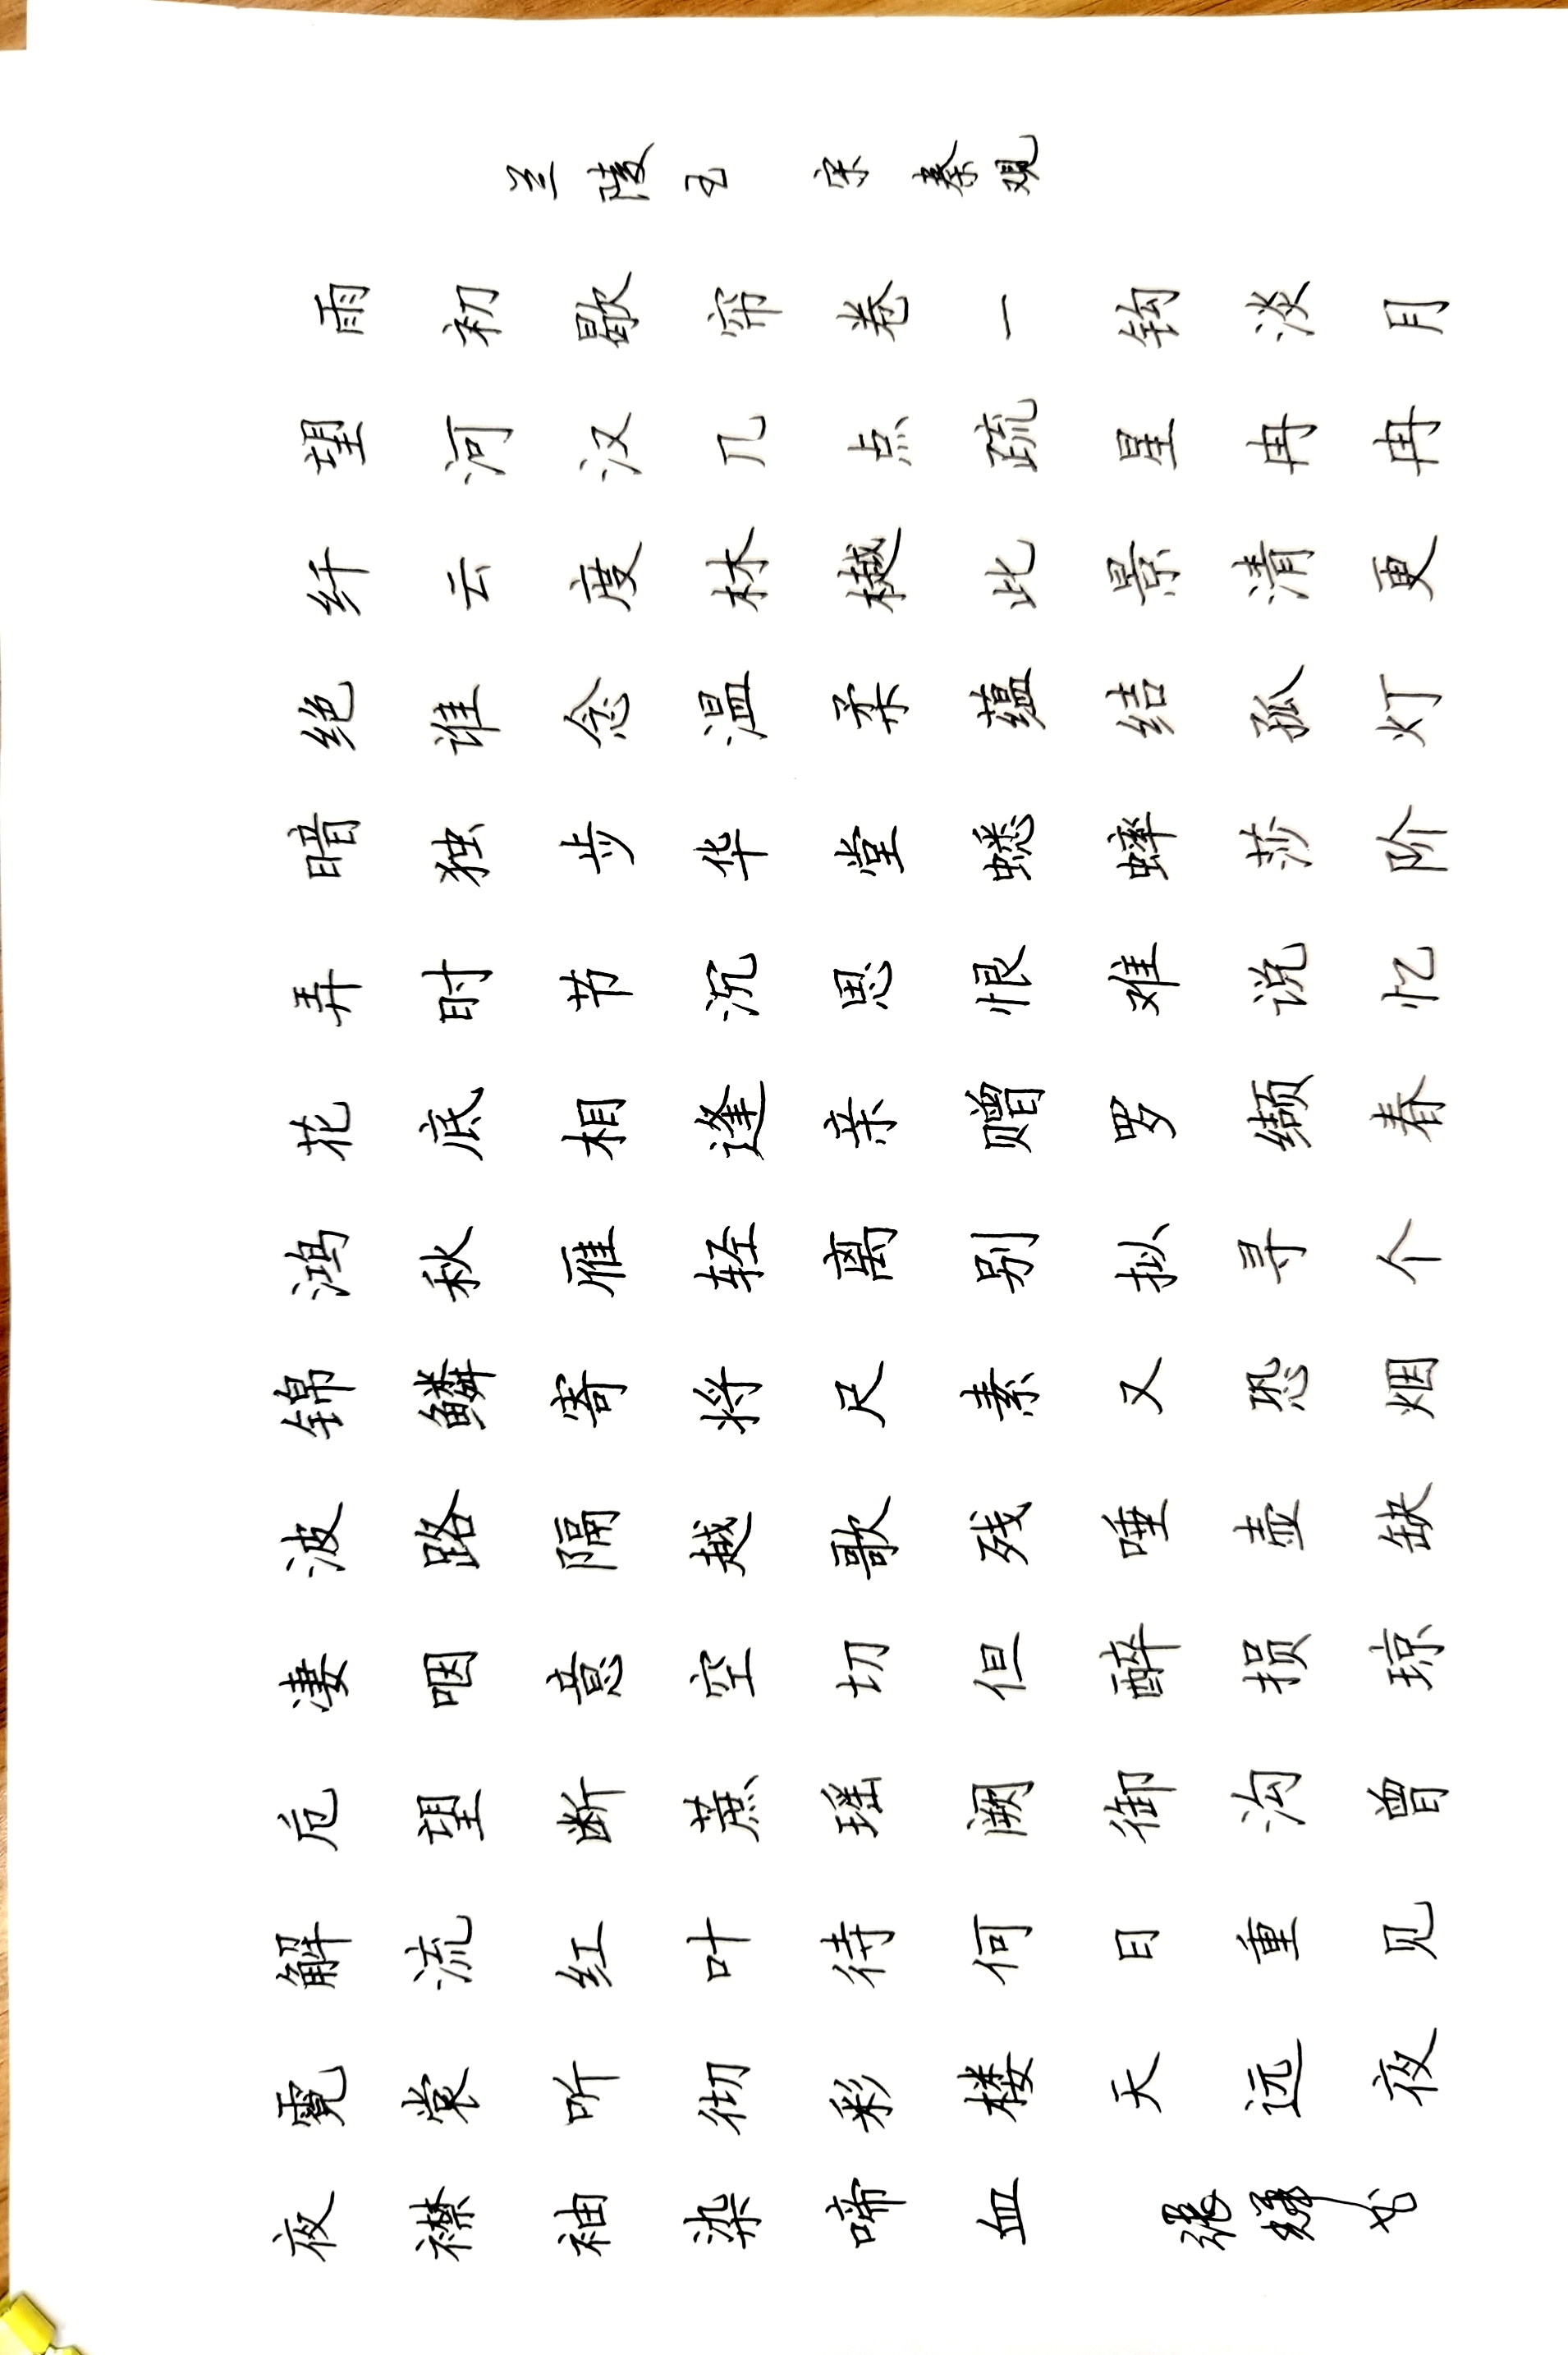 兰陵王 宋 秦观
雨初歇帘卷一钩淡月
望河汉几点疏星冉冉
纤云度林樾此景清更
绝谁念温柔蕴结孤灯
暗独步华堂蟋蟀莎阶
弄时节沉思恨难说忆
花底相逢亲赠罗缬春
鸿秋雁轻离别拟寻个
锦鳞寄将尺素又恐烟
波路隔越歌残唾壶缺
凄咽意空切但醉损琼
危望断蔗瑶阙御沟曾
解流红叶待何日重见
霓裳听彻彩楼天远夜
夜襟袖染啼血